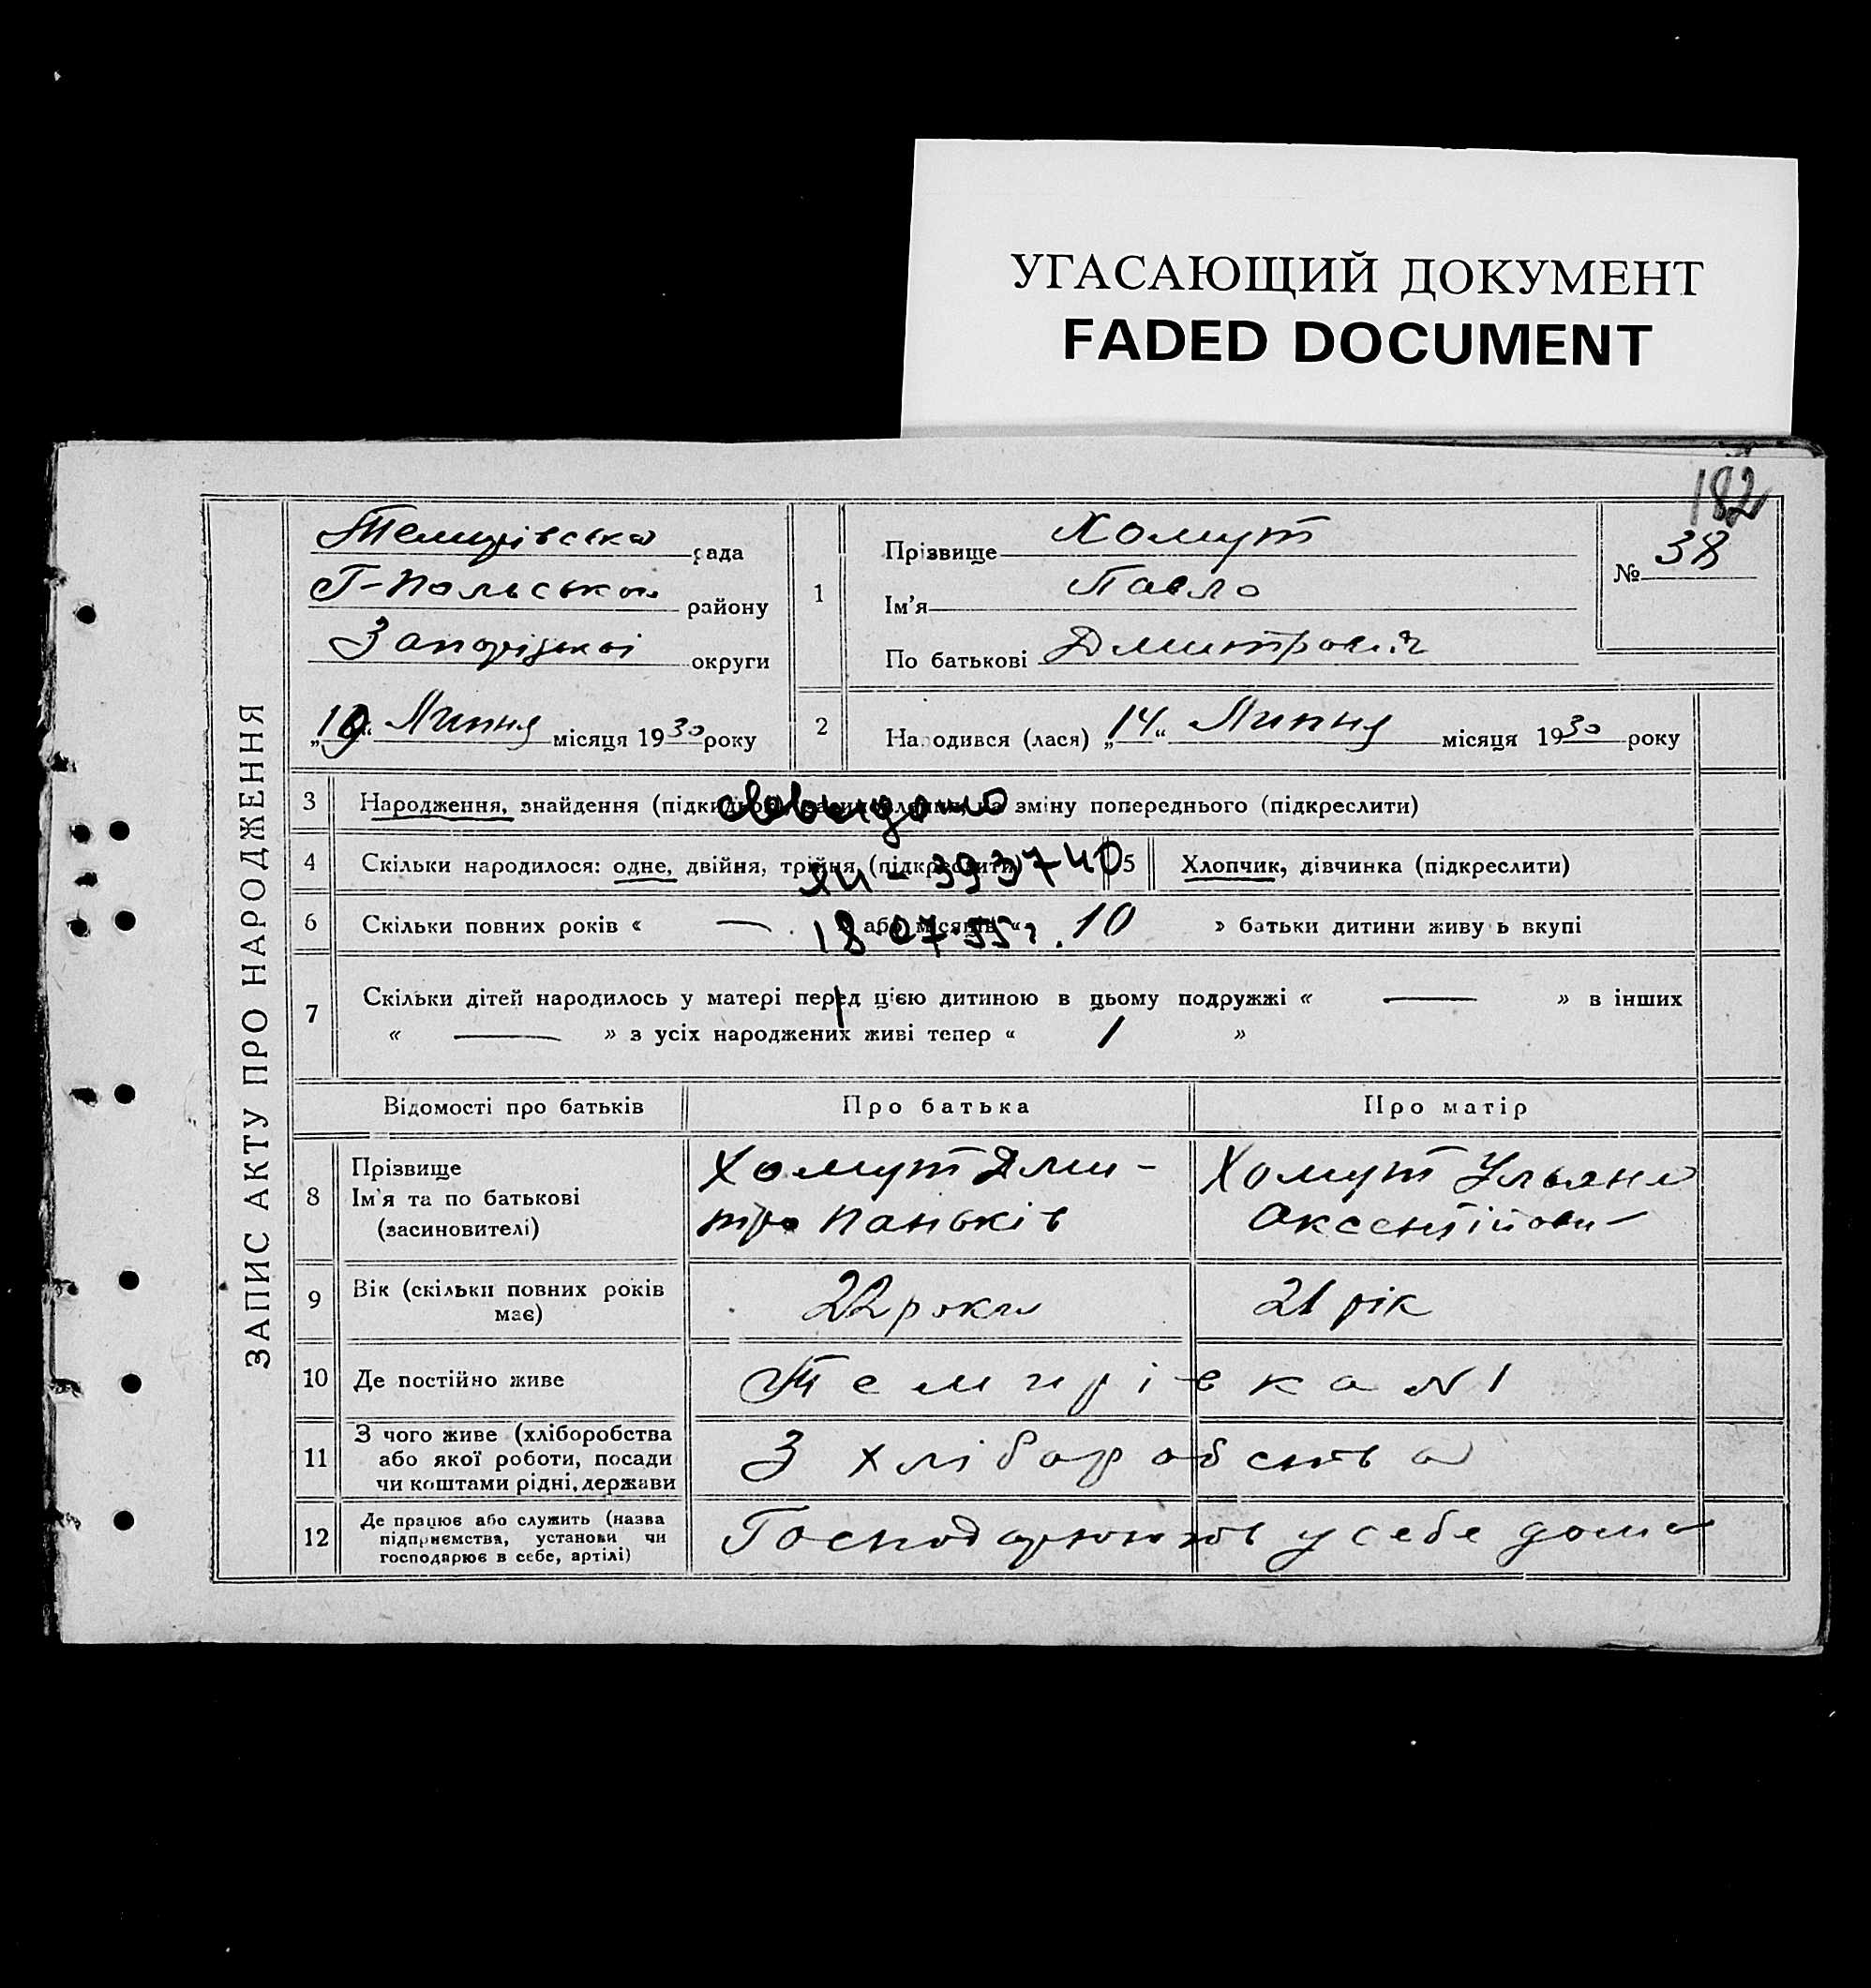 УГАСАЮЩИЙ ДОКУМЕНТ
FADED DOCUMENT
182
ЗАПИС АКТУ ПРО НАРОДЖЕННЯ
Темирівська рада
Г-Польського району
Запорізькоі округи
„19“ Липня місяця 1930 року
1 Прізвище Хомут
Ім'я Павло
По батькові Дмитрович
№ 38
2 Народився (лася) „14“ Липня місяця 1930 року
3 Народження, знайдення (підкид на зміну попереднього (підкреслити)
4 Скільки народилося: одне, двійня, трійня, (підкреслити) 5 Хлопчик, дівчинка (підкреслити)
- 393740
6 Скільки повних років « — або місяців « 10 » батьки дитини живуть вкупі
18.07.55 г.
7 Скільки дітей народилось у матері перед цією дитиною в цьому подружжі « — » в інших
« — » з усіх народжених живі тепер « 1 »
Відомості про батьків Про батька Про матір
8 Прізвище
Ім'я та по батькові
(засиновителі)
Хомут Дми-
тро Паньків
Хомут Ульяна
Оксентійовн
9 Вік (скільки повних років
має)
22 роки
21 рік
10 Де постійно живе Темирівка N 1
11 З чого живе (хліборобства
або якої роботи, посади
чи коштами рідні, держави
З хліборобства
12 Де працює або служить (назва
підприємства, установи чи
господарює в себе, артілі)
Господарюють у себе дома